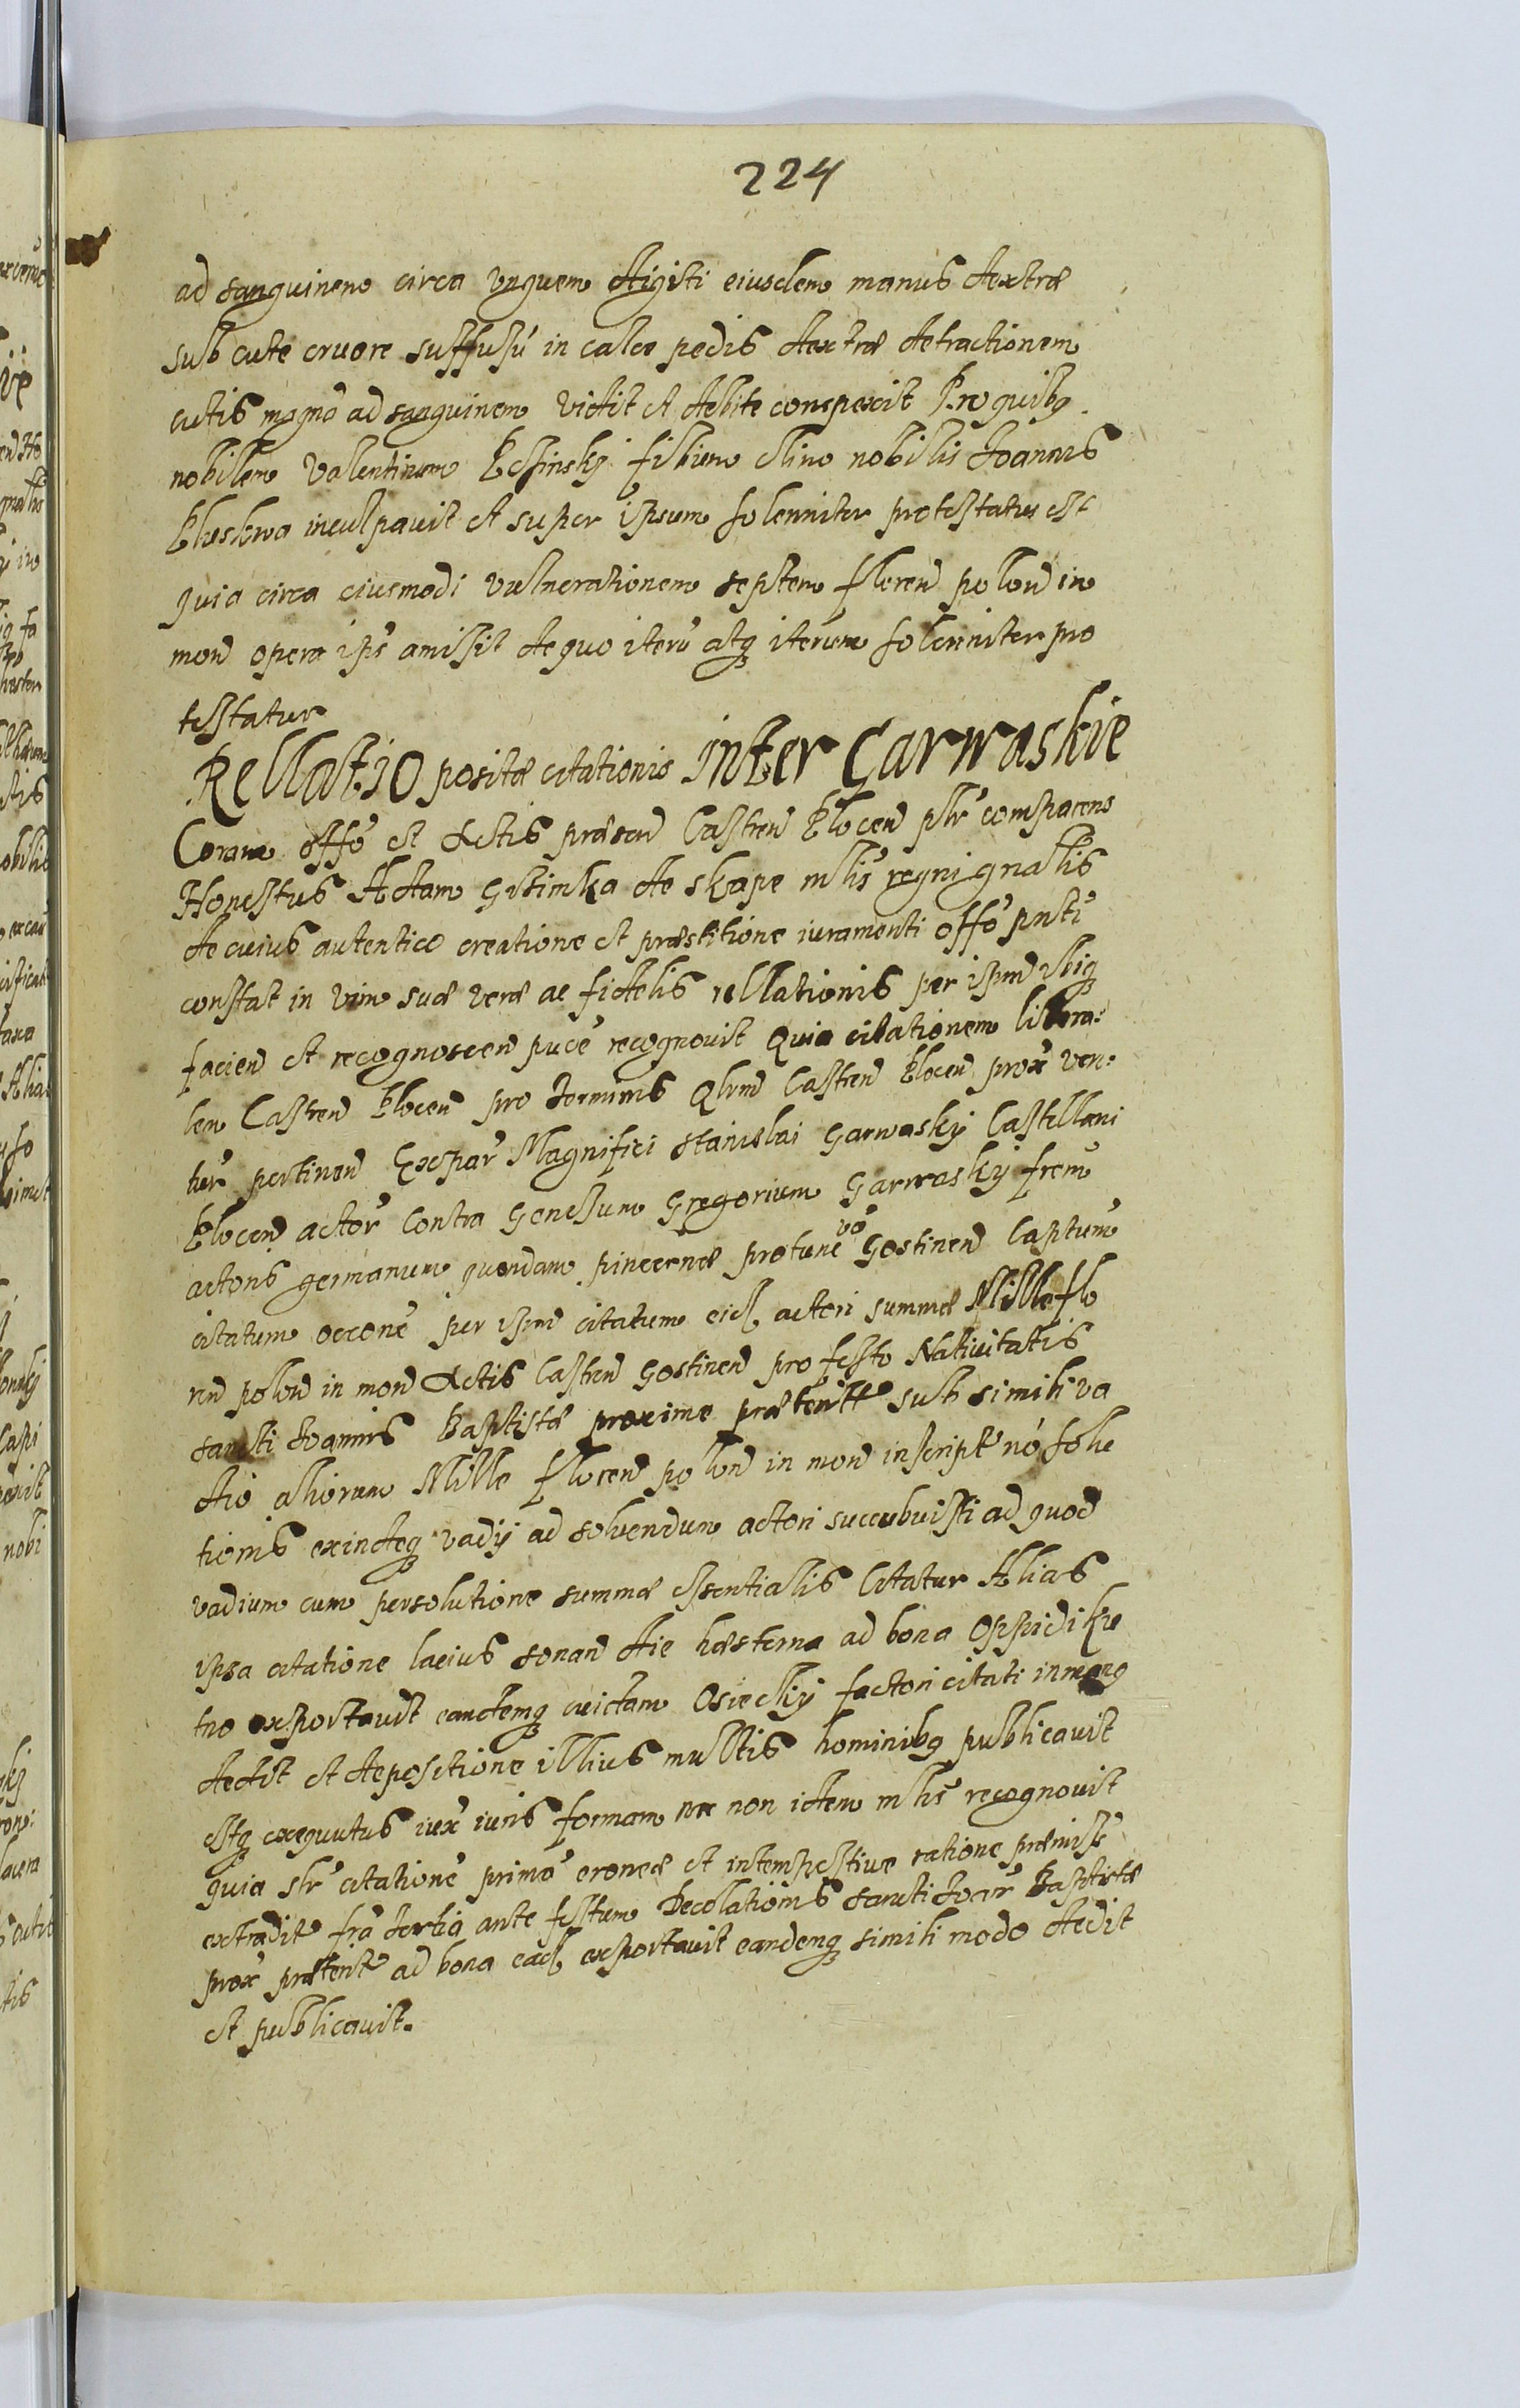 224
ad sanguinem circa vnguem digiti eiusdem manus dextræ
sub cute cruore suffusú in calce pedis dextræ detractionem
cutis magná ad sanguinem vidit et debite conspexit Pro quibq
nobilem Valentinum filium olim nobilis Joannis
inculpauit et super ipsum solenniter protestatus est
quia circa eiusmodi vulnerationem septem floren polon in
mon opera ips amisit de quo iterú atq iterum solenniter pro
testatur
Rellatio positæ citationis inter Garwaskie
Coram offo et Actis præsen Castren Plocen plr comparens
Honestus Adam Gizimka de Skape mlis regni gnalis
de cuius autentica creatione et præstitione iuramenti offo pnti
constat in vim suæ veræ ac fidelis rellationis per ipm ibiq
facien et recognoscen puce recognouit Quia citationem littera:
lem Castren Plocen pro terminis Qlrm Castren Plocen prox ven:
tur pertinen Expar Magnifici Stanislai Garwasky Castellani
Plocen actor Contra Gensum Gregorium Garwasky frem
actoris germanum quondam pincernæ protunc vo Gostinen Captum
citatum occone per ipm citatum eid actori summæ Mille flo
ren polon in mon Actis Castren Gostinen pro festo Natiuitatis
sancti Joannis Baptistæ proxime præterit sub simili va
dio aliorum Mille floren polon in mon inscript nó solu
tionis exindeq vadij ad soluendum actori succubuisti ad quod
vadium cum persolutione summæ essentialis Citatur Alias
ipsa citatione lacius sonan die hesterna ad bona Oppidi Ku
tno exportauit eandemq cuidam Osiecky factori citati in mang
dedit et depositione illius multis hominibq publicauit
estq exequutus iux iuris formam nec non idem mlis recognouit
quia slr citatione primo eronee et intempestiue ratione præmiss
extradit fra tertia ante festum Decolationis sancti Joan Baptistæ
prox præterit ad bona ead exportauit eandemq simili modo dedit
et publicauit.